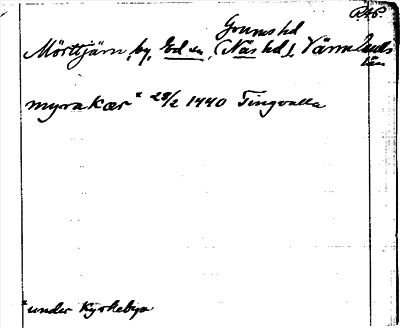 RAP.
Grums hd
Mörttjärn, by, Ed sn, (Näs hd), Värmlands
län
myrakær* 28/2 1440 Tingvalla
*under Kyrkebyn